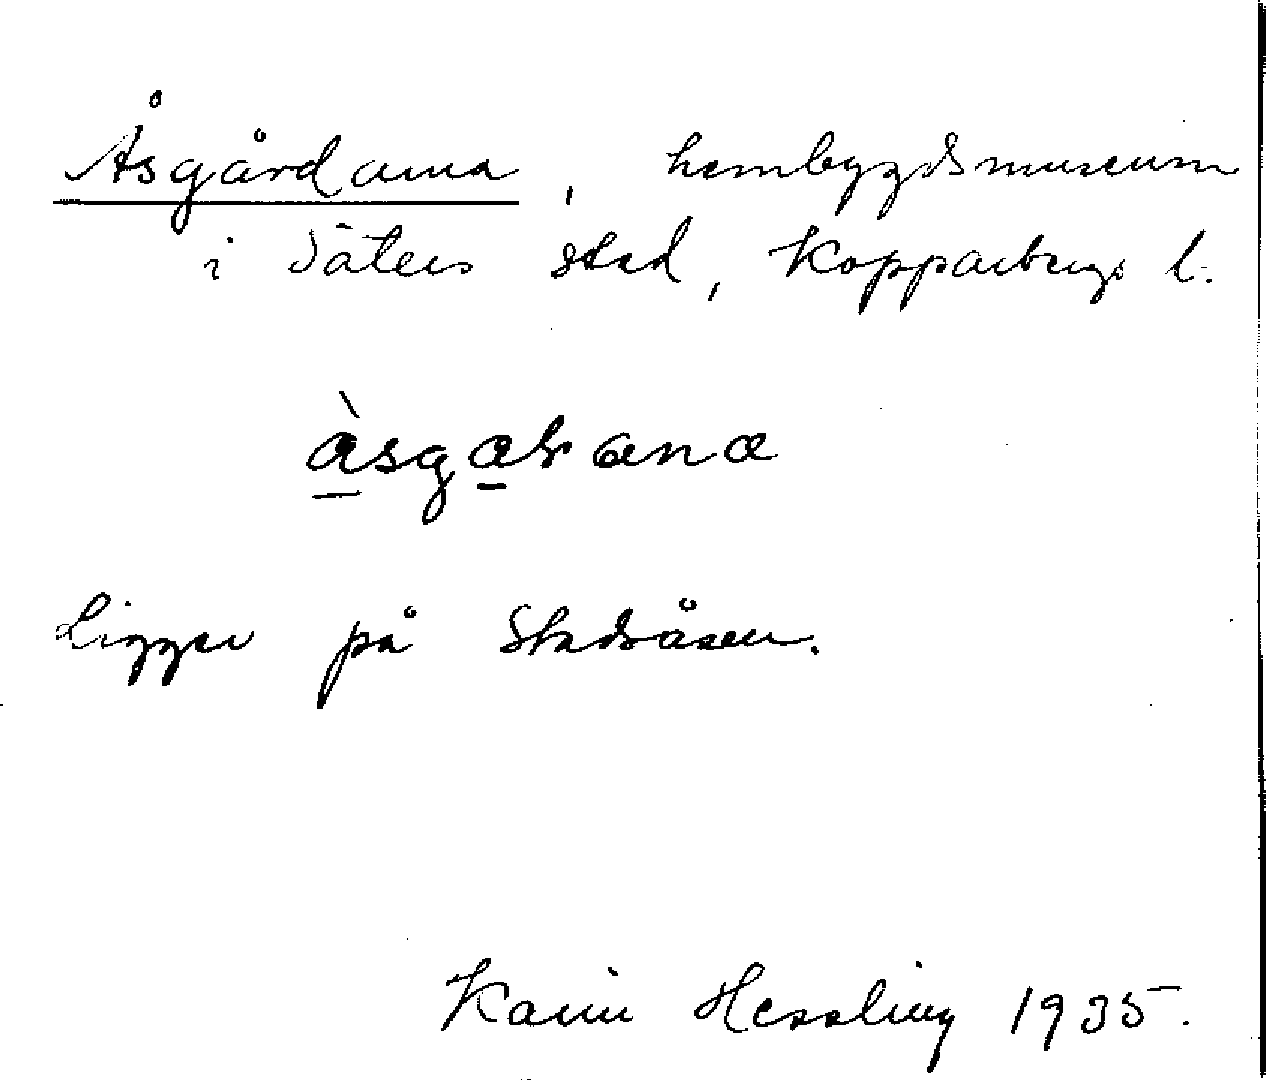 Åsgårdarna, hembygdsmuseum
i Säters stad, Kopparbergs l.
Ligger på Stadsåsen.
Karin Hessling 1935.